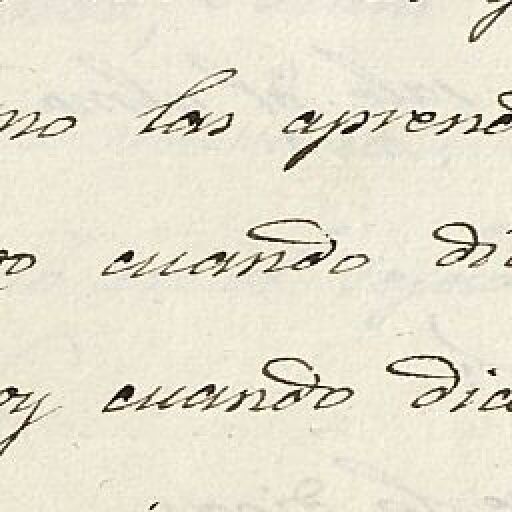 mo las aprend
o cuando di
oy cuando dia